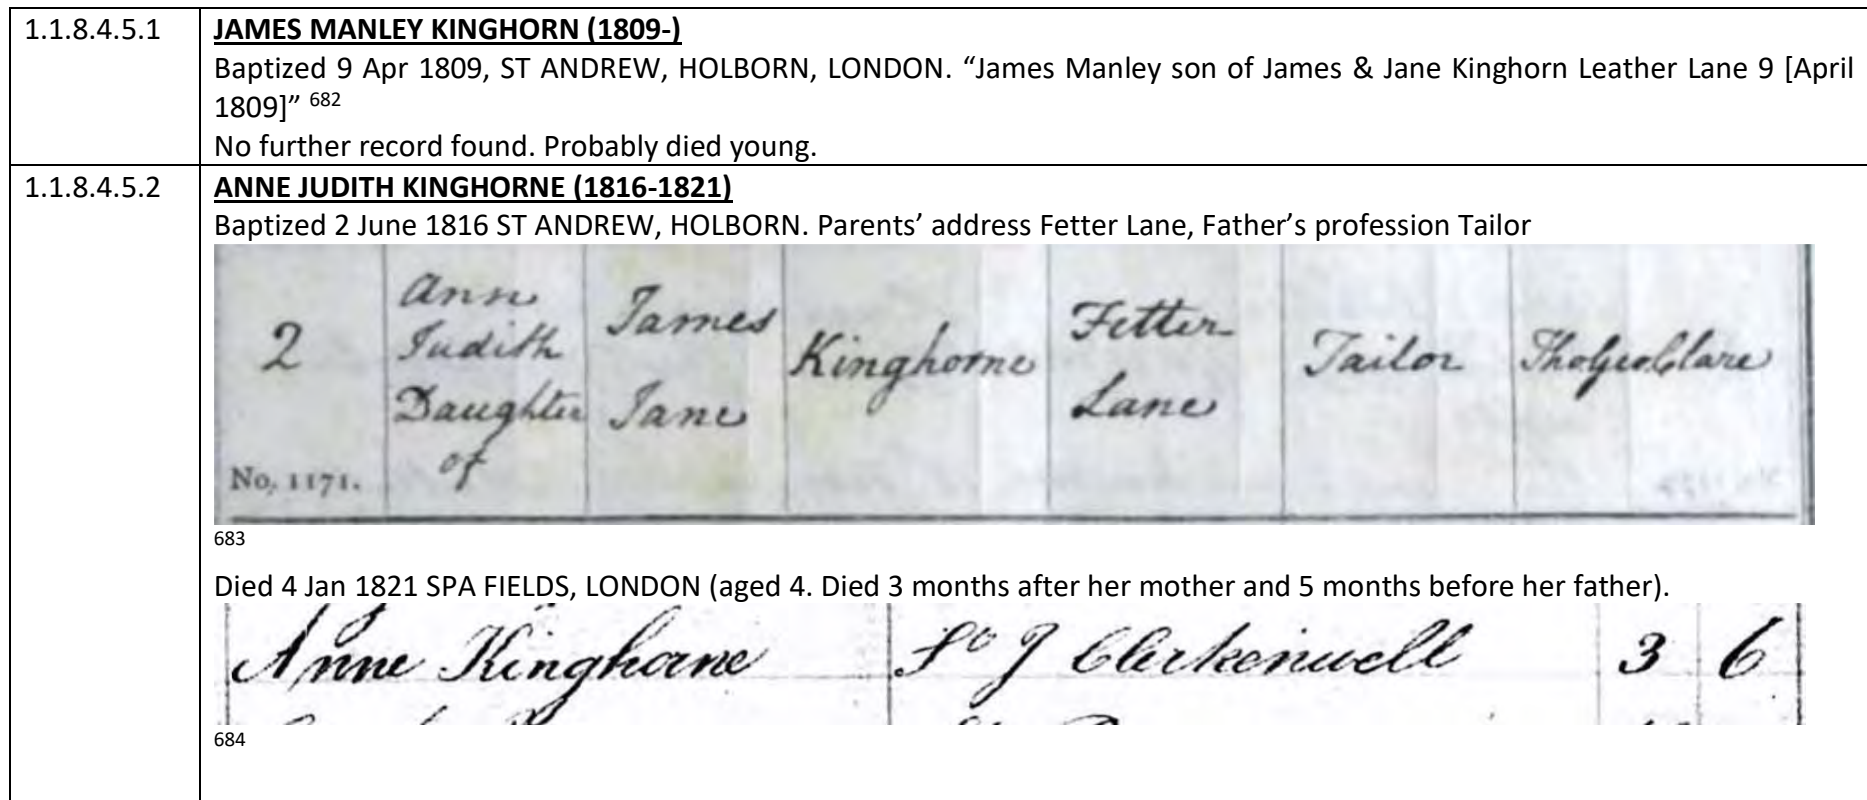 1.1.8.4.5.1
JAMES MANLEY KINGHORN (1809-)
Baptized 9 Apr 1809, ST ANDREW, HOLBORN, LONDON. “James Manley son of James & Jane Kinghorn Leather Lane 9 [April
1809]” 682
No further record found. Probably died young.
1.1.8.4.5.2
ANNE JUDITH KINGHORNE (1816-1821)
Baptized 2 June 1816 ST ANDREW, HOLBORN. Parents’ address Fetter Lane, Father’s profession Tailor
2
No. 1171.
Ann
Judith
Daughter
of
James
Jane
Kinghorne
Fetter
Lane
Tailor
Tho Geo Clare
683
Died 4 Jan 1821 SPA FIELDS, LONDON (aged 4. Died 3 months after her mother and 5 months before her father).
Anne Kinghorne St J Clerkenwell 3 6
684